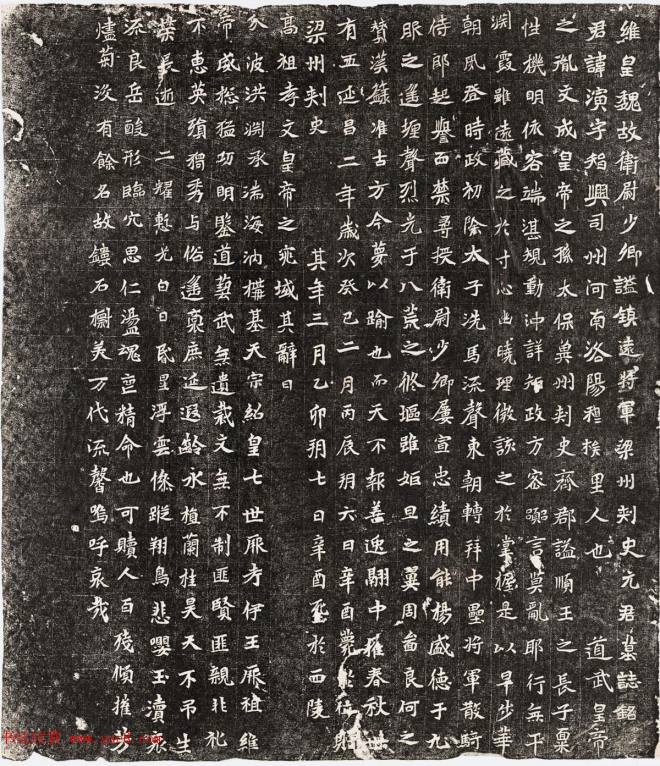 維皇魏故衛尉少卿謚鎮遠將軍梁州刺史元君墓誌銘
君諱演字智興司州河南洛陽穆族里人也 道武皇帝
之胤文成皇帝之孫太保冀州刺史齊郡謚順王之長子稟
性機明依容端湛規動沖詳知政方容 言莫亂耶行無平
淵霞雖遠藏之於寸心幽曉理微該之於掌握是以早步華
朝夙登時政初除太子洗馬流聲東朝轉拜中壘將軍散騎
侍郎起譽西禁尋授衛尉少卿屢宣忠績用能楊威德于九
服之遙壃聲烈光于八荒之脩堰雖姬旦之翼周畣良何之
贊漢錄准古方今蔑以踰也而天不報善速翻中摧春秋卅
有五延昌二年歲次癸巳二月丙辰朔六日辛酉薨於行
梁州刺史 其年三月乙卯朔七日辛酉至於西陵
高祖孝文皇帝之兆域其辭曰
攸波洪淵承湍海汭構基天宗紹皇七世厥考伊王厥祖維
帝威摠猛功明鑒道藝武無遺裁文無不制匪賢匪親非礼
不惠英殞獨秀与俗遙稟庶延遐齡永植蘭桂昊天不弔生
榮長逝 二耀慙光白日昏星浮雲慘蹤翔鳥悲嚶玉瀆
流良岳酸形臨穴思仁盪魂喪精命也可贖人百殘傾摧芳
燼菊沒有餘名故鏤石櫥美万代流馨嗚呼哀哉